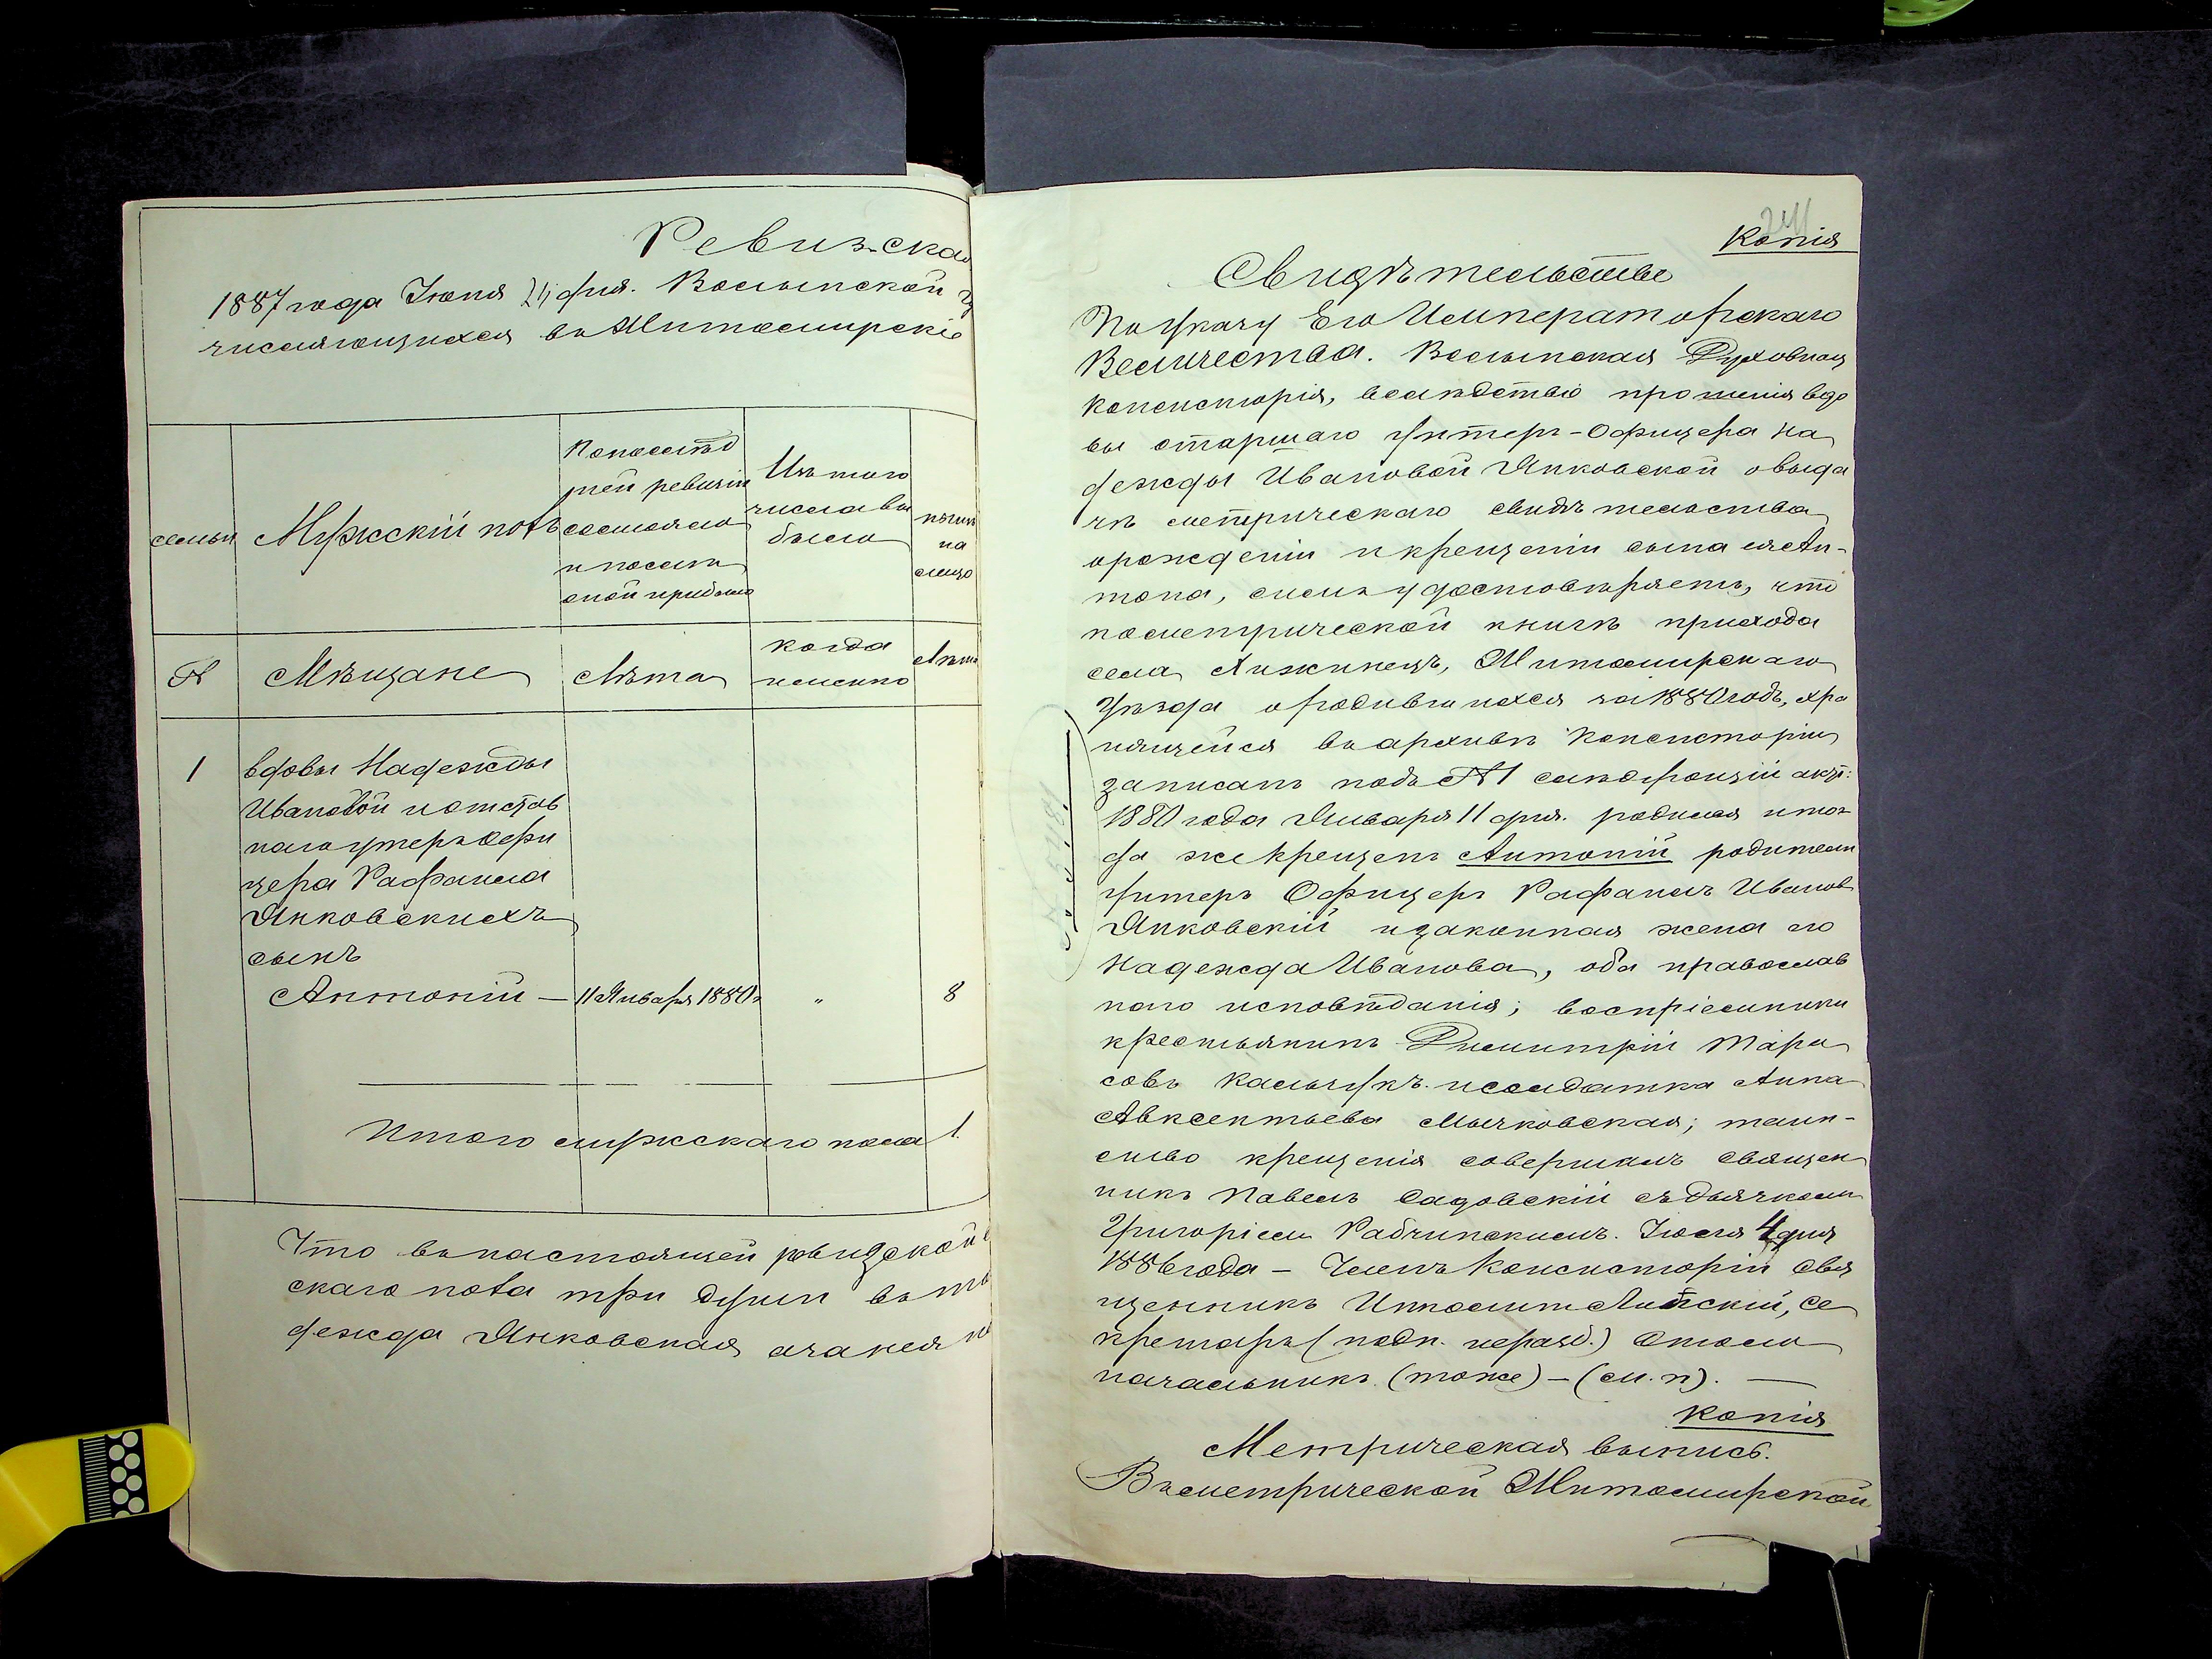 Ревизская
1887 года Іюня 24 дня. Волынской
числяющихся въ Житомирскіе
семьи
Мужскій полъ
По послѣд
ней ревизіи
состояло
и после
оной прибыло
Изъ того
числа вы
было
нынѣ
на
лицо
№
Мѣщане
Лѣта
когда
именно
Лѣта
1
вдовы Надежды
Ивановой и отстав
наго унтеръ Офи
цера Рафаила
Янковскихъ
сынъ
Антоній — 11 Января 1880 г. „ 8
Итого мужскаго пола 1.
Что въ настоящей ревизской
скаго пола три души въ
дежда Янковская а за нея
241
Копія
Свидѣтельство
По Указу Его Императорскаго
Величества. Волынская Духовная
Консисторія, вслѣдствіе прошенія вдо
вы старшаго Унтеръ-Офицера На
дежды Ивановой Янковской о выда
чѣ метрическаго свидѣтельства
о рожденіи и крещеніи сына ея Ан-
тона, симъ удостовѣряетъ, что
по метрической книгѣ прихода
села Житомирскаго
Уѣзда о родившихся за 1880 годъ, хра
нящейся въ архивѣ Консисторіи
записанъ подъ №1 слѣдующій актъ:
1880 года Января 11 дня. родился и тог
да же крещенъ Антоній родители
Унтеръ Офицеръ Рафаилъ Ивановъ
Янковскій и законная жена его
Надежда Иванова, оба православ
наго исповѣданія; воспріемники
крестьянинъ Димитрій Тара
совъ Кальчукъ и солдатка Анна
Авксентьева Мычковская; таин-
ство крещенія совершалъ Священ
никъ Павелъ Садовскій съ дьячкомъ
Григоріемъ Рабчинскимъ. Іюля 4 дня
1886 года — Членъ Консисторіи Свя
щенникъ Ипполитъ Се
кретарь (подп. неразб.) Столо
начальникъ (тоже) — (м. п.). —
Копія
Метрическая выпись.
Въ метрической Житомирской